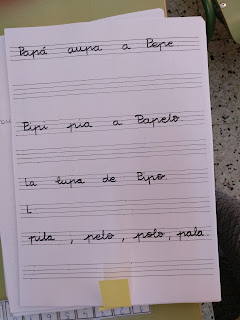 Papá aupa a Pepe
Pipi pia a Papelo.
La lupa de Pipo.
L
pila, pelo, polo, pala